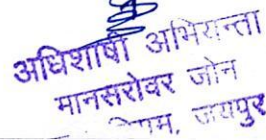 अधिशाषी अभियन्ता
मानसरोवर जोन
निगम, जयपुर